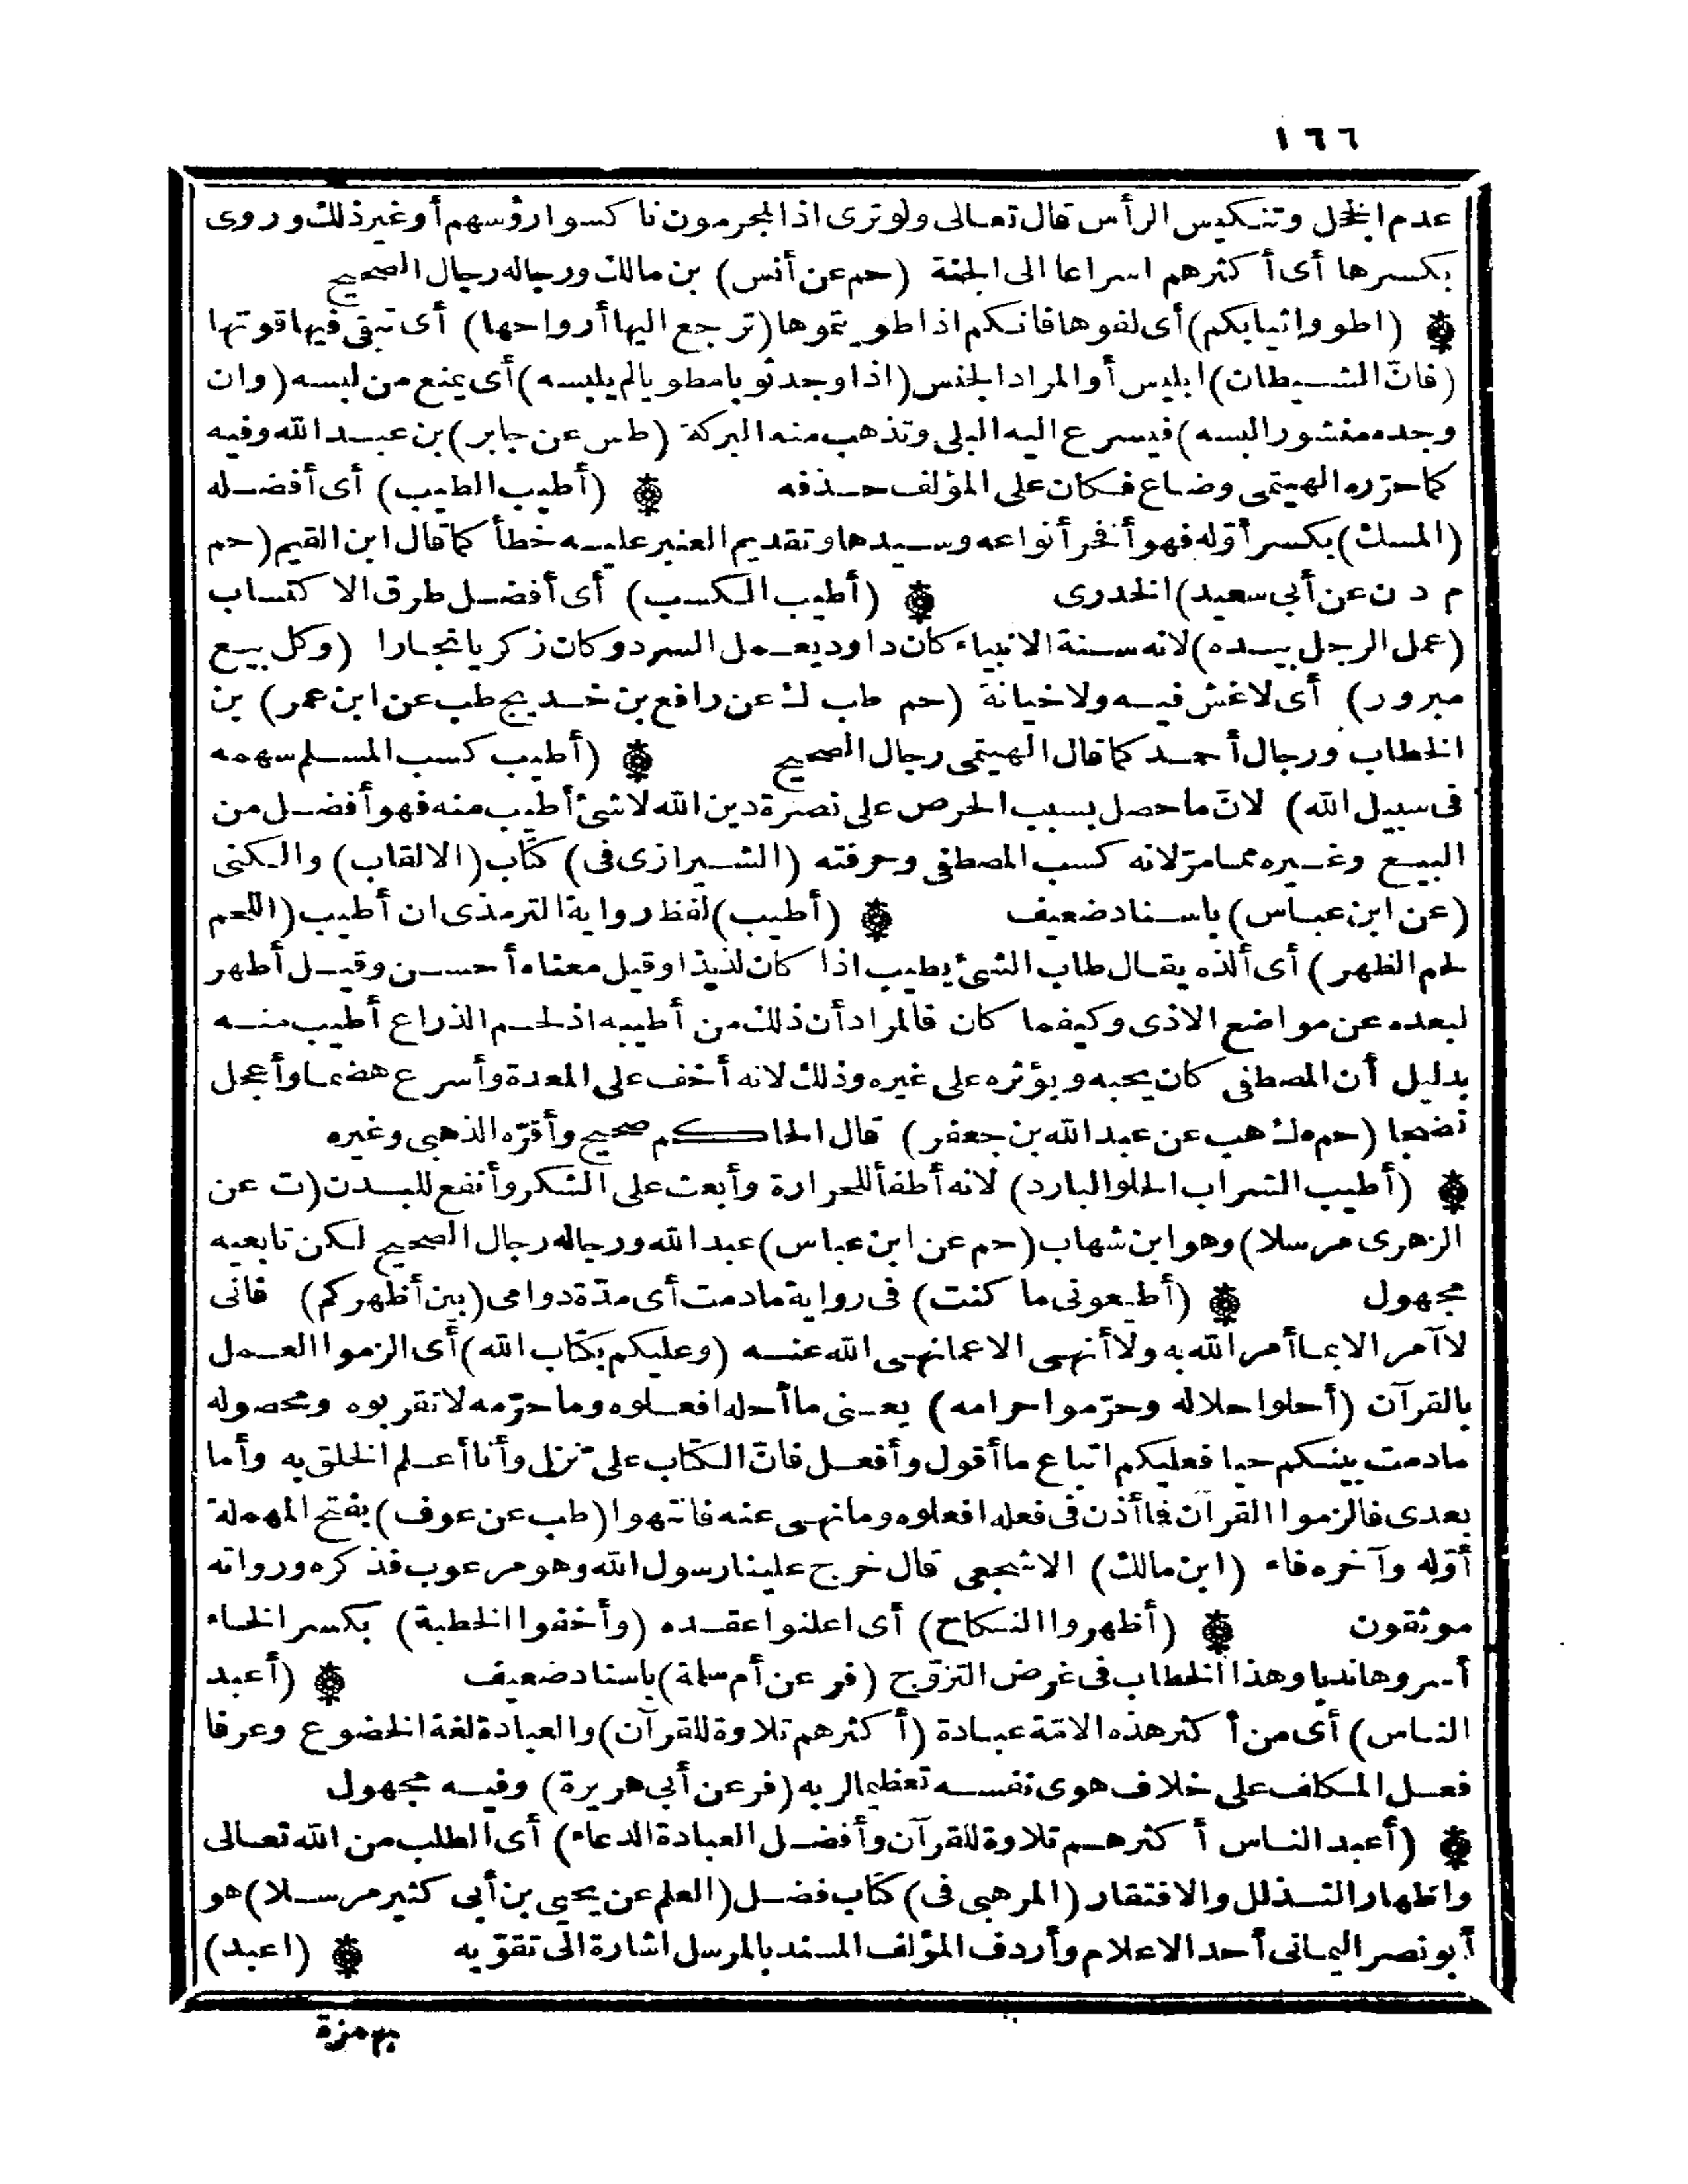 ١٦٦
عدم الخجل وتنكيس الرأس قال تعالى ولو ترى اذ المجرمون ناكسوا رؤسهم أو غير ذلك وروى
بكسرها أى أكثرهم اسراعا الى الجنة (حم عن أنس) بن مالك ورجاله رجال الصحيح
(اطووا ثيابكم) أى لفوها فانكم اذا طويتموها (ترجع اليها أرواحها) أى تبقى فيها قوتها
(فانّ الشيطان) ابليس أو المراد الجنس (اذا وجد ثوبا مطويا لم يلبسه) أى يمنع من لبسه (وان
وجده منشورا لبسه) فيسرع اليه البلى وتذهب منه البركة (طس عن جابر) بن عبد الله وفيه
كما حرّره الهيتمى وضاع فكان على المؤلف حذفه (أطيب الطيب) أى أفضله
(المسك) بكسر أوّله فهو أفخر أنواعه وسيدها وتقديم العنبر عليه خطأ كما قال ابن القيم (حم
م د ن عن أبي سعيد) الخدرى (أطيب الكسب) أى أفضل طرق الاكتساب
(عمل الرجل بيده) لانه سنة الانبياء كان داود يعمل السرد وكان زكريا نجارا (وكل بيع
مبرور) أى لا غش فيه ولا خيانة (حم طب ك عن رافع بن خديج طب عن ابن عمر) بن
الخطاب ورجال أحمد كما قال الهيتمى رجال الصحيح (أطيب كسب المسلم سهمه
فى سبيل الله) لانّ ما حصل بسبب الحرص على نصرة دين الله لا شئ أطيب منه فهو أفضل من
البيع وغيره مما مرّ لانه كسب المصطفى وحرفته (الشيرازى فى) كتاب (الالقاب) والكنى
(عن ابن عباس) باسناد ضعيف (أطيب) لفظ رواية الترمذى ان أطيب (اللحم
لحم الظهر) أى ألذه يقال طاب الشئ يطيب اذا كان لذيذا وقيل معناه أحسن وقيل أطهر
لبعده عن مواضع الاذى وكيفما كان فالمراد أن ذلك من أطيبه اذ لحم الذراع أطيب منه
بدليل أن المصطفى كان يحبه ويؤثره على غيره وذلك لانه أخف على المعدة وأسرع هضما وأعجل
نضجا (حم ه ك هب عن عبد الله بن جعفر) قال الحاكم صحيح وأقرّه الذهبى وغيره
(أطيب الشراب الحلو البارد) لانه أطفأ للحرارة وأبعث على الشكر وأنفع للبدن (ت عن
الزهرى مرسلا) وهو ابن شهاب (حم عن ابن عباس) عبد الله ورجاله رجال الصحيح لكن تابعيه
مجهول (أطيعونى ما كنت) فى رواية ما دمت أى مدّة دوامى (بين أظهركم) فانى
لا آمر الا بما أمر الله به ولا أنهى الا عما نهى الله عنه (وعليكم بكتاب الله) أى الزموا العمل
بالقرآن (أحلوا حلاله وحرّموا حرامه) يعنى ما أحله افعلوه وما حرّمه لا تقربوه ومحصوله
ما دمت بينكم حيا فعليكم اتباع ما أقول وأفعل فانّ الكتاب علىّ نزل وأنا أعلم الخلق به وأما
بعدى فالزموا القرآن فما أذن فى فعله افعلوه وما نهى عنه فانتهوا (طب عن عوف) بفتح المهملة
أوّله وآخره فاء (ابن مالك) الاشجعى قال خرج علينا رسول الله وهو مرعوب فذكره ورواته
موثقون (أظهروا النكاح) أى اعلنوا عقده (وأخفوا الخطبة) بكسر الخاء
أسروها ندبا وهذا الخطاب فى غرض التزوّج (فر عن أم سلمة) باسناد ضعيف (أعبد
الناس) أى من أكثر هذه الامّة عبادة (أكثرهم تلاوة للقرآن) والعبادة لغة الخضوع وعرفا
فعل المكلف على خلاف هوى نفسه تعظيما لربه (فر عن أبى هريرة) وفيه مجهول
(أعبد الناس أكثرهم تلاوة للقرآن وأفضل العبادة الدعاء) أى الطلب من الله تعالى
واظهار التذلل والافتقار (المرهبى فى) كتاب فضل (العلم عن يحيى بن أبى كثير مرسلا) هو
أبو نصر اليمانى أحد الاعلام وأردف المؤلف المسند بالمرسل اشارة الى تقوّيه (اعبد)
بهمزة